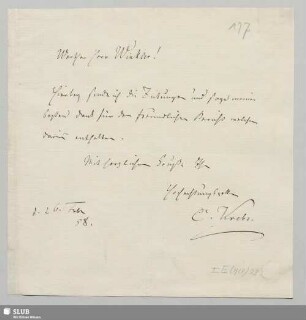 137
Werther Herr Winkler!
Hierbei sende ich die Zeitungen und sage meinen
besten Dank für den freundlichen Bericht welcher
darin enthalten.
Mit herzlichem Gruße Ihr
Hochachtungsvoller
C. Krebs.
d. 26. Febr.
58.
SLUB